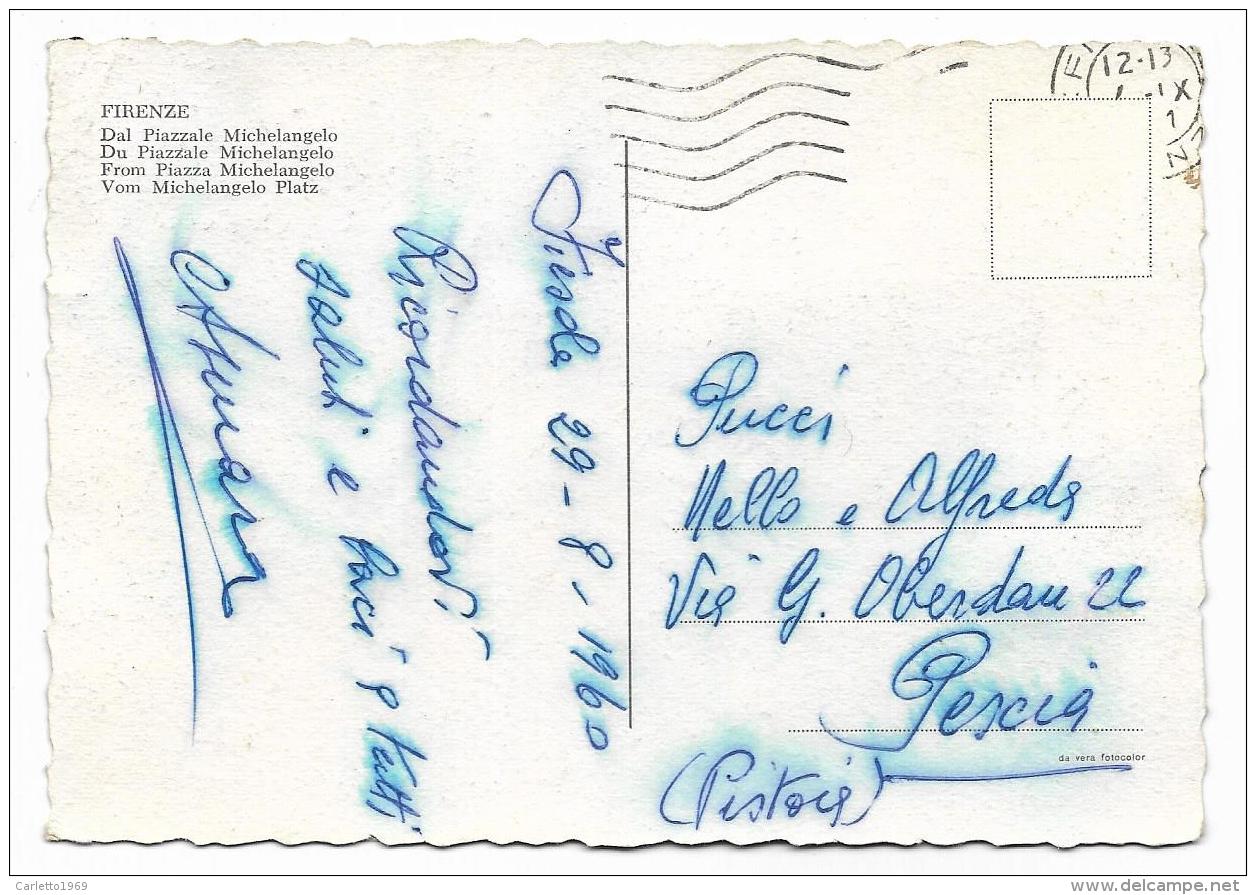 FIRENZE
Dal Piazzale Michelangelo
Du Piazzale Michelangelo
From Piazza Michelangelo
Vom Michelangelo Platz
12-13
IX
29-8-1960
Ricordandovi
saluti e baci a tutti
Pucci
Nello e Alfreda
Via G. Oberdan 22
Pescia
(Pistoia)
da vera fotocolor
Carletto1969
delcampe.net